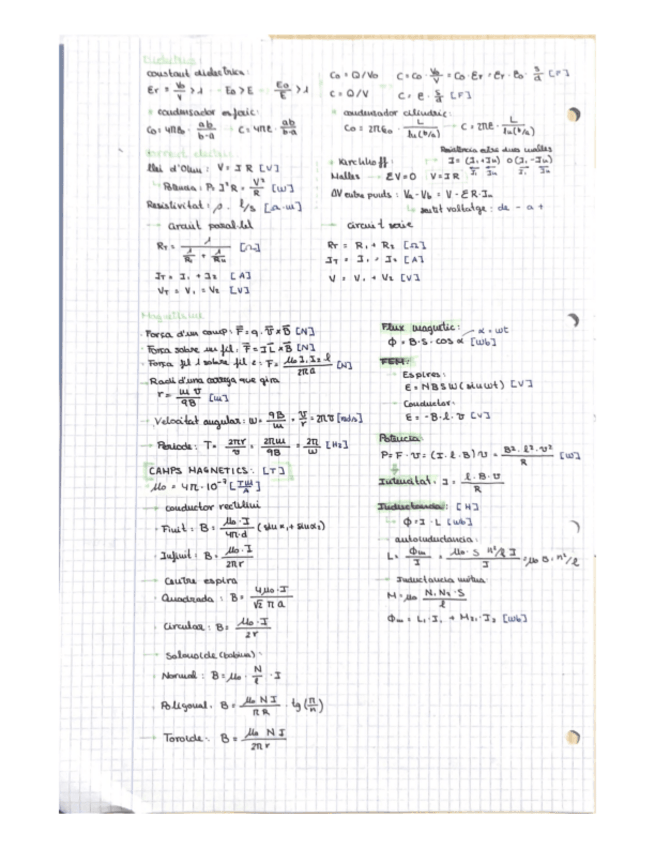 Dielèctrics:
constant dielèctrica:
εr = V₀/V > 1 → E₀ > E → E₀/E > 1
C₀ = Q/V₀   C = C₀ · V₀/V = C₀ · εr = εr · ε₀ · S/d [F]
C = Q/V   C = ε · S/d [F]
* condensador esfèric:
C₀ = 4πε₀ · ab/b-a → C = 4πε · ab/b-a
* condensador cilíndric:
C₀ = 2πε₀ · L/ln(b/a) → C = 2πε · L/ln(b/a)
Corrent elèctric
Llei d'Ohm: V = I R [V]
→ Potència: P = I²R = V²/R [W]
Resistivitat: ρ · l/s [Ω·m]
* Kirchhoff:
Resistència entre dues malles
I = (I₁+Iₙ) o (I₁-Iₙ)
Malles → ΣV=0 V=IR
ΔV entre punts: Va - Vb = V - ΣR·Iₙ
↳ sentit voltatge: de - a +
→ circuit paral·lel
RT = 1 / (1/R₁ + 1/Rₙ) [Ω]
IT = I₁ + I₂ [A]
VT = V₁ = V₂ [V]
→ circuit sèrie
RT = R₁ + R₂ [Ω]
IT = I₁ = I₂ [A]
V = V₁ + V₂ [V]
Magnetisme
· Força d'un camp: F = q · v × B [N]
· Força sobre un fil: F = I L × B [N]
· Força fil 1 sobre fil 2: F = μ₀ I₁ I₂ l / 2πa [N]
· Radi d'una càrrega que gira
r = m v / qB [m]
→ Velocitat angular: ω = qB/m = v/r = 2πν [rad/s]
→ Període: T = 2πr/v = 2πm/qB = 2π/ω [Hz]
CAMPS MAGNETICS: [T]
μ₀ = 4π · 10⁻⁷ [Tm/A]
→ conductor rectilini
· Finit: B = μ₀ · I / 4π · d (sin α₁ + sin α₂)
· Infinit: B = μ₀ · I / 2πr
→ Centre espira
· Quadrada: B = 4μ₀ · I / √2 π a
· Circular: B = μ₀ · I / 2r
→ Solenoide (bobina):
· Normal: B = μ₀ · N/l · I
· Poligonal: B = μ₀ N I / πR · tg(π/n)
→ Toroide: B = μ₀ N I / 2πr
Flux magnètic:
Φ = B · S · cos α [Wb] → α = ωt
FEM:
→ Espires:
E = NBSW (sin ωt) [V]
→ Conductor:
E = -B · l · v [V]
Potència:
P = F · v = (I · l · B) v = B² · l² · v² / R [W]
Intensitat: I = l · B · v / R
Inductància: [H]
→ Φ = I · L [Wb]
→ autoinductància:
L = Φm/I = μ₀ · S N²/l I / I = μ₀ S · N²/l
→ Inductància mútua
M = μ₀ N₁ N₂ · S / l
Φm = L₁ · I₁ + M₂₁ · I₂ [Wb]